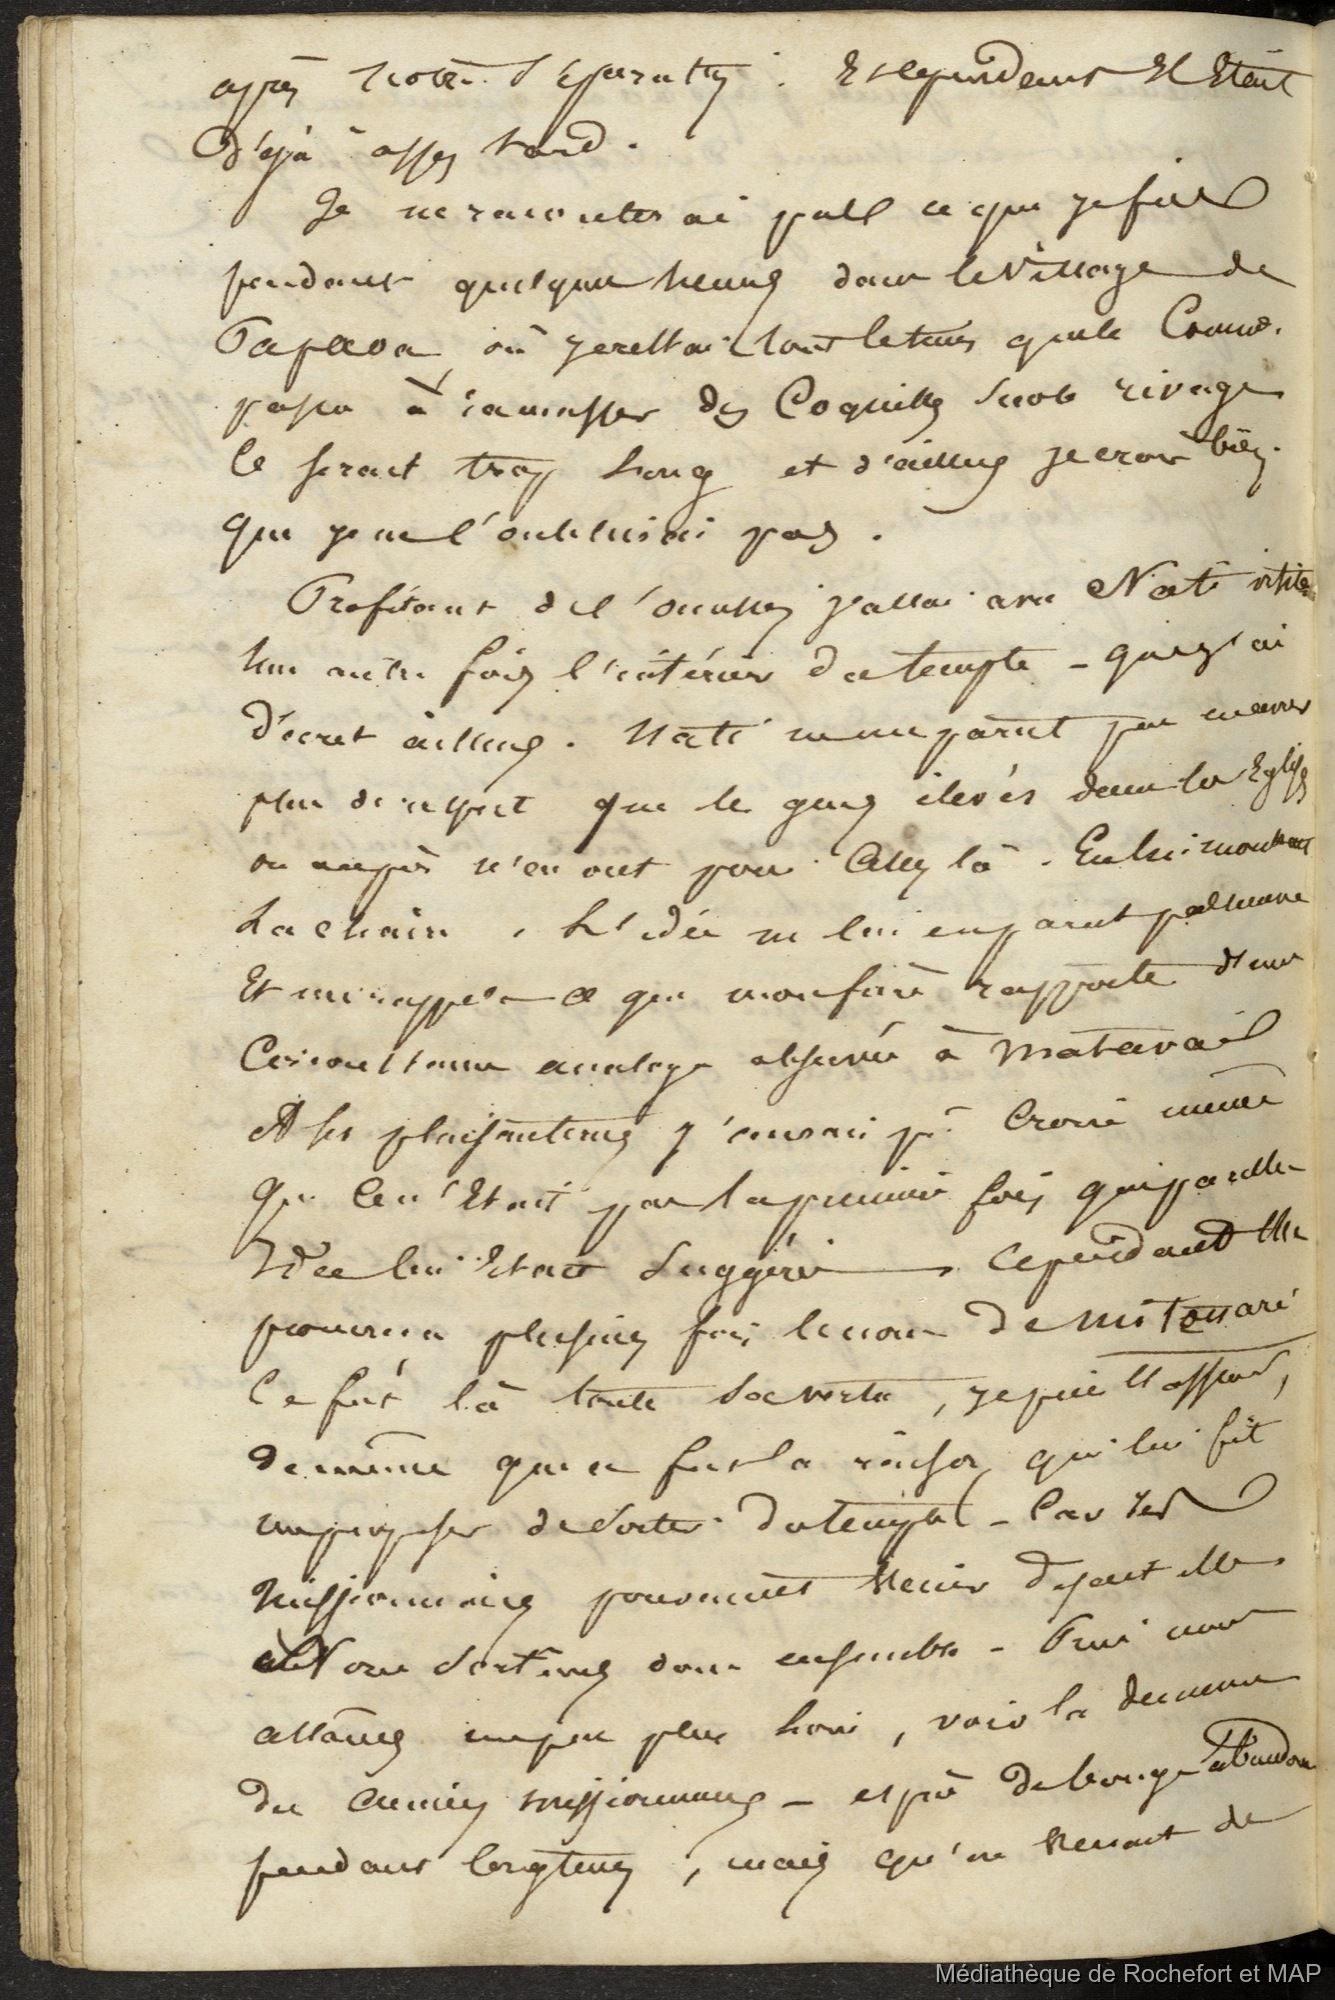 après notre séparation. Et cependant Il Etait
Déjà assez tard.
Je ne raconterai pas ce que je fis
pendant quelques heures dans le Village de
Papaoa où je restai tout le tems que le Comm.
passa à ramasser des Coquilles sur le rivage
Ce serait trop long et d'ailleurs je crois bien
que je ne l'oublierai pas.
Profitant de l'occasion j'allai avec Nati visiter
une autre fois l'intérieur du temple - que j'ai
décrit ailleurs. Nati ne me parut pas avoir
plus de respect que les gens élevés dans les Eglises
ou n'en ont pour Celles là. En lui montrant
La chaire, L'idée ne lui en parut pas
Et me rappela ce que mon frère rapporte d'une
Circonstance analogue observée à Matavaï
A ses plaisanteries j'aurais pû Croire même
Que Ce n'Etait pas la première fois que pareille
Idée lui Etait Suggérée. Cependant Elle
prononça plusieurs fois le nom De mitonari
Ce fut là toute sa vertu, je puis l'assurer,
De même que ce fut la raison qui lui fit
me proposer de Sortir Du temple - Car les
Missionnaires pouvaient Venir disait elle
Nous Sortîmes donc ensemble - Puis nous
allâmes un peu plus loin, voir la demeure
Des anciens missionnaires - espèce de bouge abandonné
pendant longtems, mais qu'on Venait de
Médiathèque de Rochefort et MAP